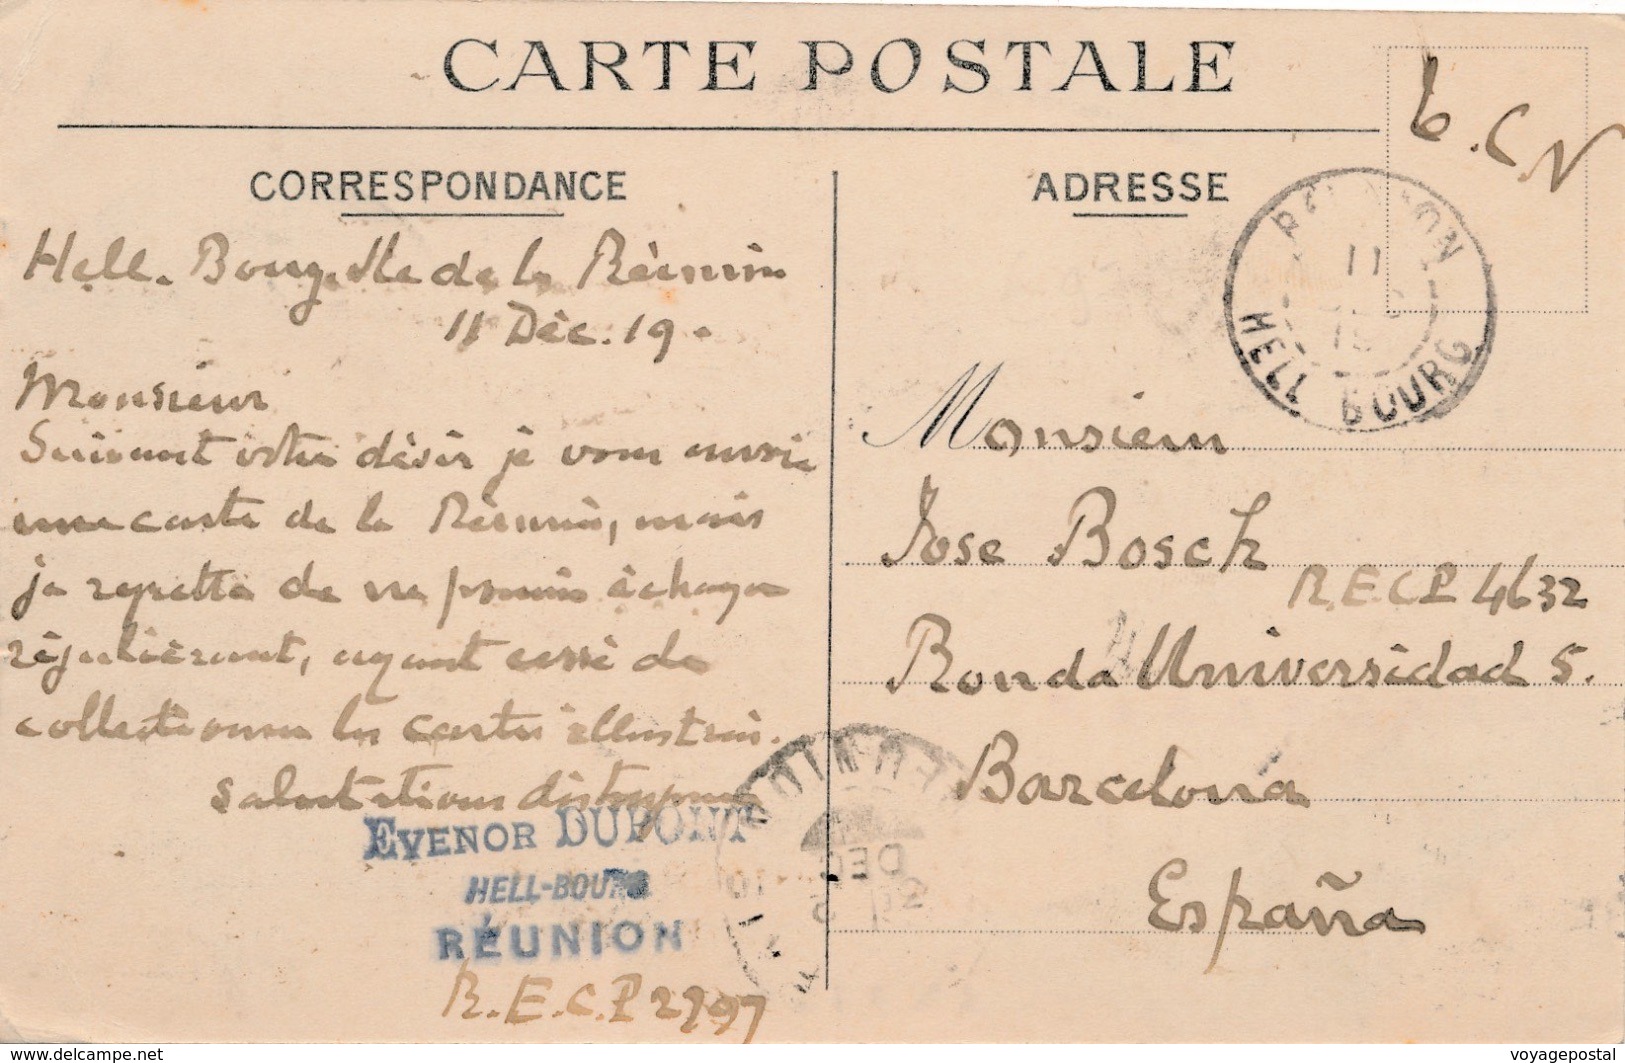 CARTE POSTALE
CORRESPONDANCE
Hell-Bourg. Ile de la Réunion
11 Déc. 19.
Monsieur
Suivant votre désir je vous envoie
une carte de la Réunion, mais
je regrette de ne pouvoir échanger
régulièrement, ayant cessé de
collectionner les cartes illustrées.
Salutations distinguées
EVENOR DUPONT
HELL-BOURG
RÉUNION
R.E.C.P 2797
ADRESSE
T.C.V
RÉUNION
11
HELL BOURG
Monsieur
Jose Bosch
R.E.C.P. 4632
Ronda Universidad 5.
Barcelona
España
DEC
www.delcampe.net
voyagepostal